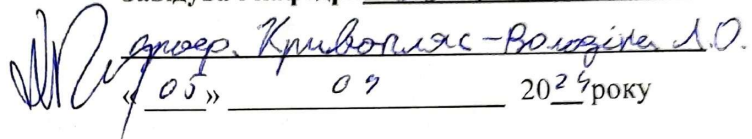 проф. Кривопляс-Володіна Л.О.
« 05 » 09 2024 року